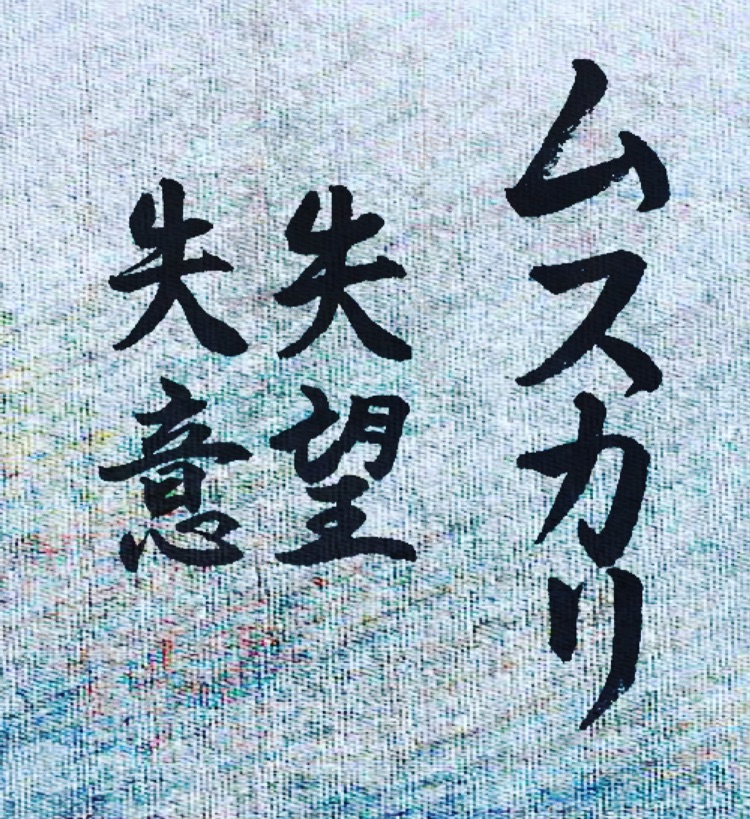 ムスカリ
失望
失意